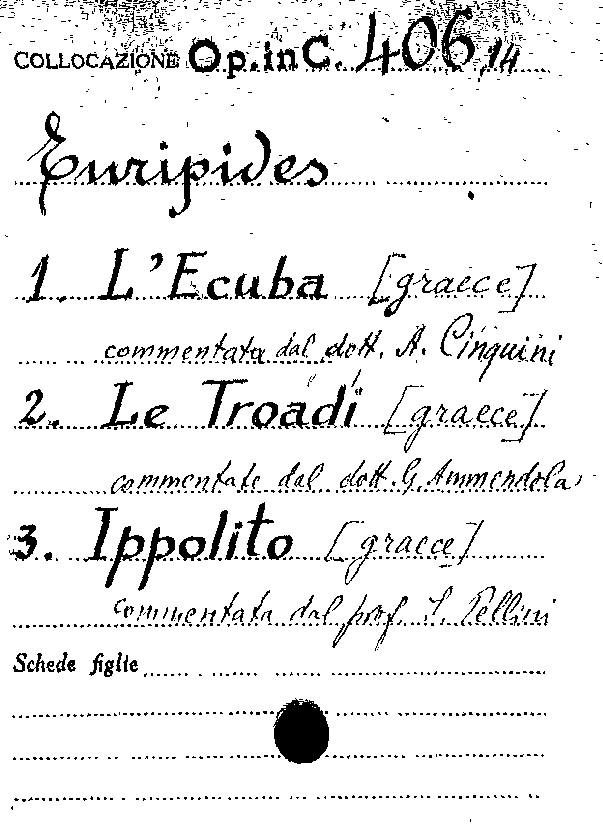 COLLOCAZIONE Op. in C. 406,14
Euripides
1. L'Ecuba [graece]
commentata dal dott. A. Cinquini
2. Le Troadi [graece]
commentate dal dott. G. Ammendola
3. Ippolito [graece]
commentata dal prof. S. Pellini
Schede figlie